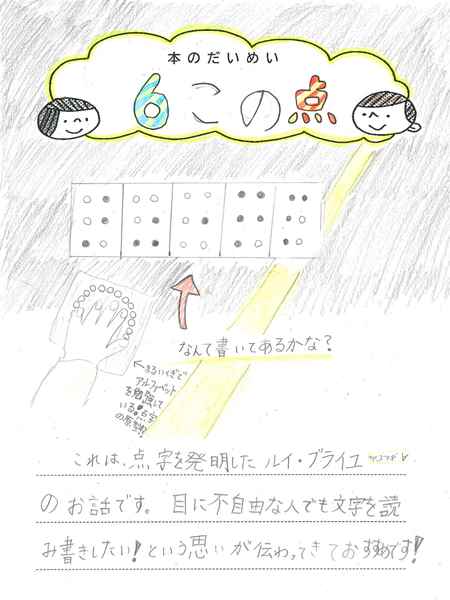 本のだいめい
6この点
なんて書いてあるかな?
←まるいくぎで
アルファベット
を勉強して
いる!点字
の原型!
これは、点字を発明したルイ・ブライユ
のお話です。目に不自由な人でも文字を読
み書きしたい!という思いが伝わってきておすすめです!